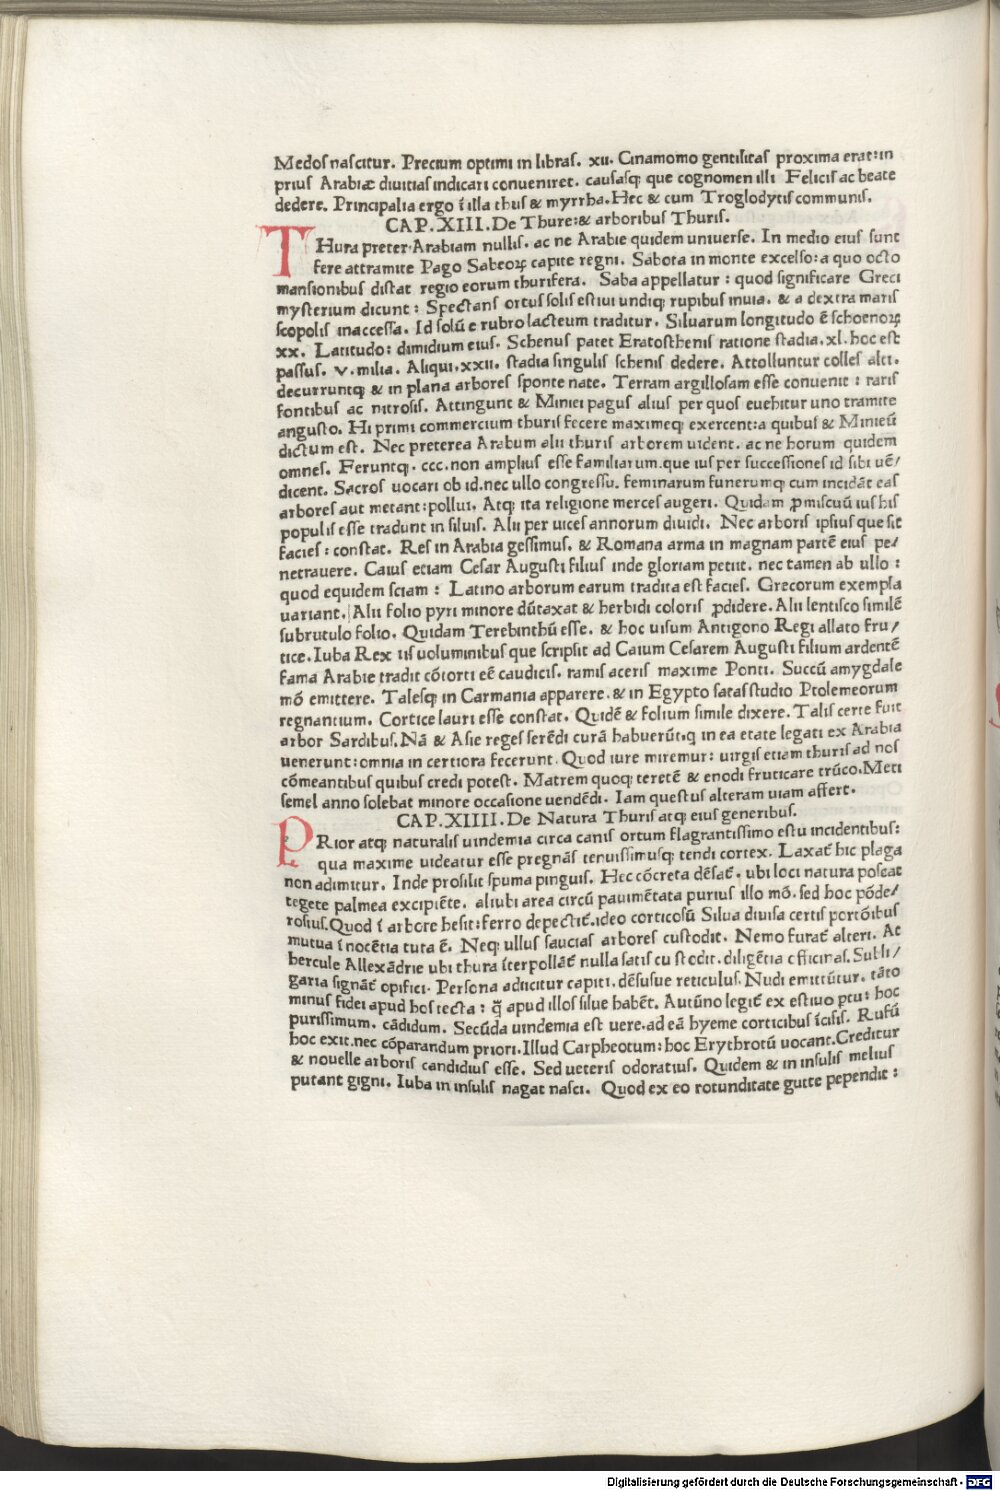 Medoſ naſcitur. Precium optimi in libraſ. xii. Cinamomo gentilitaſ proxima erat:in
priuſ Arabiæ diuitiaſ indicari conueniret. cauſaſq; que cognomen illi Feliciſ ac beate
dedere. Principalia ergo ī illa thuſ & myrrha. Hec & cum Troglodytiſ communiſ.
CAP. XIII. De Thure: & arboribuſ Thuriſ.
THura preter Arabiam nulliſ. ac ne Arabie quidem uniuerſe. In medio eiuſ ſunt
fere attramite Pago Sabeoꝝ capite regni. Sabota in monte excelſo: a quo octo
manſionibuſ diſtat regio eorum thurifera. Saba appellatur : quod ſignificare Greci
myſterium dicunt : Spectanſ ortuſ ſoliſ eſtiui undiq; rupibuſ inuia. & a dextra mariſ
ſcopoliſ inacceſſa. Id ſolū e rubro lacteum traditur. Siluarum longitudo ē ſchoenoꝝ
xx. Latitudo: dimidium eiuſ. Schenuſ patet Eratoſtheniſ ratione ſtadia. xl. hoc eſt
paſſuſ. v. milia. Aliqui. xxii. ſtadia ſinguliſ ſcheniſ dedere. Attolluntur colleſ alti.
decurruntq; & in plana arboreſ ſponte nate. Terram argilloſam eſſe conuenit : rariſ
fontibuſ ac nitroſiſ. Attingunt & Miniei paguſ aliuſ per quoſ euehitur uno tramite
anguſto. Hi primi commercium thuriſ fecere maximeq; exercent: a quibuſ & Minieū
dictum eſt. Nec preterea Arabum alii thuriſ arborem uident. ac ne horum quidem
omneſ. Feruntq;. ccc. non ampliuſ eſſe familiarum. que iuſ per ſucceſſioneſ id ſibi uē/
dicent. Sacroſ uocari ob id. nec ullo congreſſu. feminarum funerumq; cum incidāt eaſ
arboreſ aut metant: pollui. Atq; ita religione merceſ augeri. Quidam ꝓmiſcuū iuſ hiſ
populiſ eſſe tradunt in ſiluiſ. Alii per uiceſ annorum diuidi. Nec arboriſ ipſiuſ que ſit
facieſ : conſtat. Reſ in Arabia geſſimuſ. & Romana arma in magnam partē eiuſ pe/
netrauere. Caiuſ etiam Ceſar Auguſti filiuſ inde gloriam petiit. nec tamen ab ullo :
quod equidem ſciam : Latino arborum earum tradita eſt facieſ. Grecorum exempla
uariant. Alii folio pyri minore dūtaxat & herbidi coloriſ ꝓdidere. Alii lentiſco ſimilē
ſubrutulo folio. Quidam Terebinthū eſſe. & hoc uiſum Antigono Regi allato fru/
tice. Iuba Rex iiſ uoluminibuſ que ſcripſit ad Caium Ceſarem Auguſti filium ardentē
fama Arabie tradit cōtorti eē caudiciſ. ramiſ aceriſ maxime Ponti. Succū amygdale
mō emittere. Taleſq; in Carmania apparere. & in Egypto ſataſ ſtudio Ptolemeorum
regnantium. Cortice lauri eſſe conſtat. Quidē & folium ſimile dixere. Taliſ certe fuit
arbor Sardibuſ. Nā & Aſie regeſ ſerēdi curā habuerūt. q in ea etate legati ex Arabia
uenerunt: omnia in certiora fecerunt. Quod iure miremur: uirgiſ etiam thuriſ ad noſ
cōmeantibuſ quibuſ credi poteſt. Matrem quoq; teretē & enodi fruticare trūco. Meti
ſemel anno ſolebat minore occaſione uendēdi. Iam queſtuſ alteram uiam affert.
CAP. XIIII. De Natura Thuriſ atq; eiuſ generibuſ.
PRior atq; naturaliſ uindemia circa caniſ ortum flagrantiſſimo eſtu incidentibuſ:
qua maxime uideatur eſſe pregnāſ tenuiſſimuſq; tendi cortex. Laxat̄ hic plaga
non adimitur. Inde proſilit ſpuma pinguiſ. Hec cōcreta dēſat̄. ubi loci natura poſcat
tegete palmea excipiēte. aliubi area circū pauimētata puriuſ illo mō. ſed hoc pōde/
roſiuſ. Quod ī arbore heſit: ferro depectit̄. ideo corticoſū Silua diuiſa certiſ portōibuſ
mutua ī nocētia tuta ē. Neq; ulluſ ſauciaſ arboreſ cuſtodit. Nemo furat̄ alteri. At
hercule Allexādrie ubi thura īterpollāt̄ nulla ſatiſ cuſtodit. diligētia officinaſ. Subli/
garia ſignāt̄ opifici. Perſona adiicitur capiti. dēſuſue reticuluſ. Nudi emittūtur. tāto
minuſ fidei apud hoſ tecta : q̄ apud illoſ ſilue habēt. Autūno legit̄ ex eſtiuo ptu: hoc
puriſſimum. cādidum. Secūda uindemia eſt uere. ad eā hyeme corticibuſ īciſiſ. Rufū
hoc exit. nec cōparandum priori. Illud Carpheotum: hoc Erythrotū uocant. Creditur
& nouelle arboriſ candidiuſ eſſe. Sed ueteriſ odoratiuſ. Quidem & in inſuliſ meliuſ
putant gigni. Iuba in inſuliſ nagat naſci. Quod ex eo rotunditate gutte pependit :
Digitalisierung gefördert durch die Deutsche Forschungsgemeinschaft - DFG